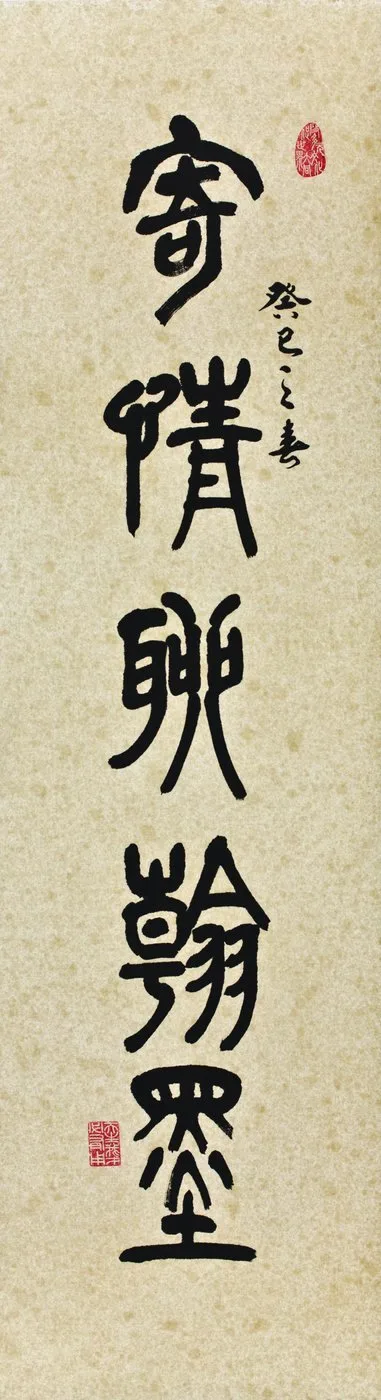 癸巳之春
寄情聊翰墨